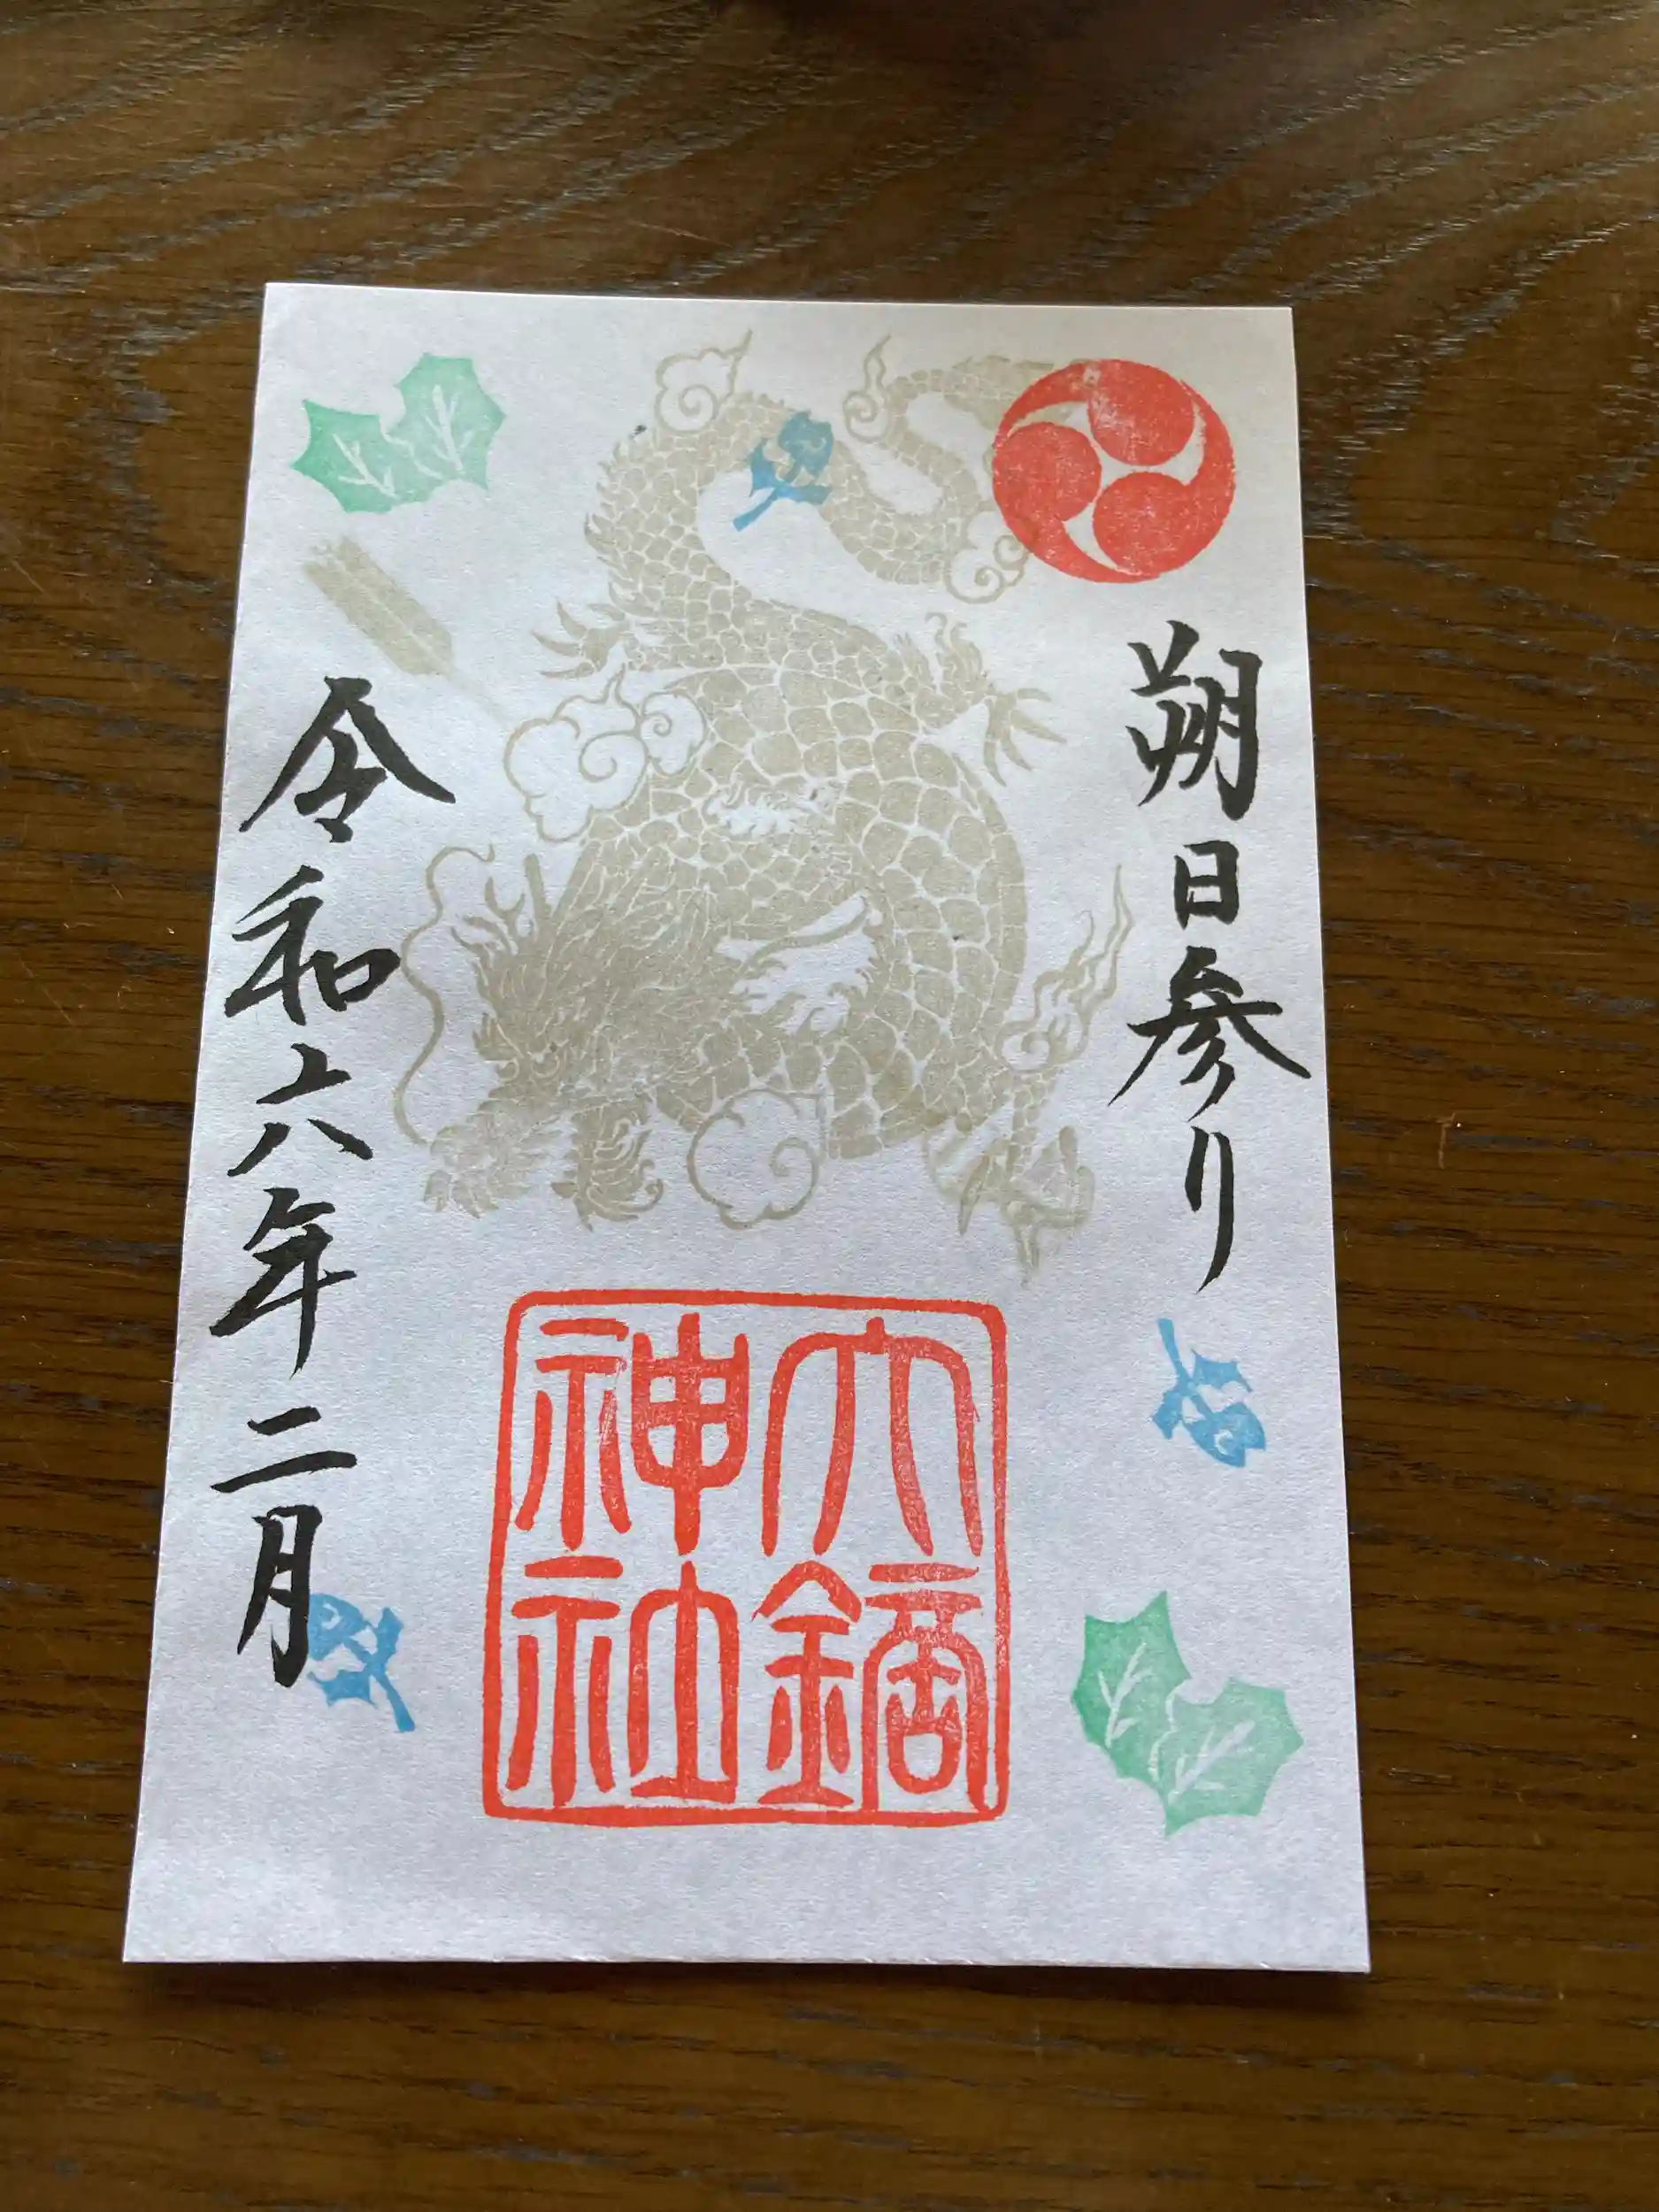 朔日参り
六鏑
神社
令和六年二月